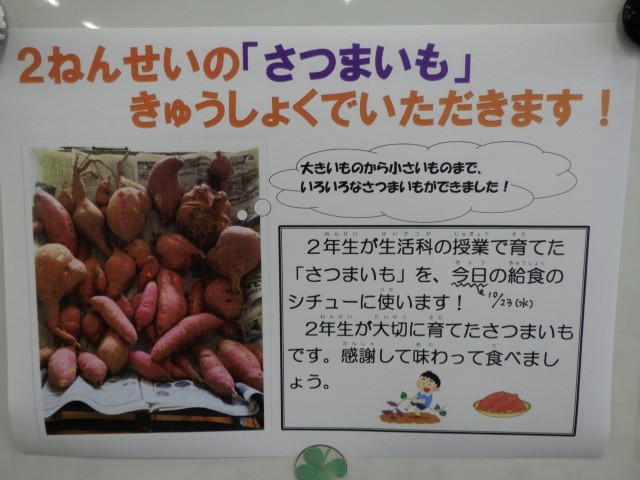 2ねんせいの「さつまいも」
きゅうしょくでいただきます!
大きいものから小さいものまで、
いろいろなさつまいもができました!
2年生が生活科の授業で育てた
「さつまいも」を、今日の給食の
シチューに使います!
10/23(水)
2年生が大切に育てたさつまいも
です。感謝して味わって食べまし
ょう。